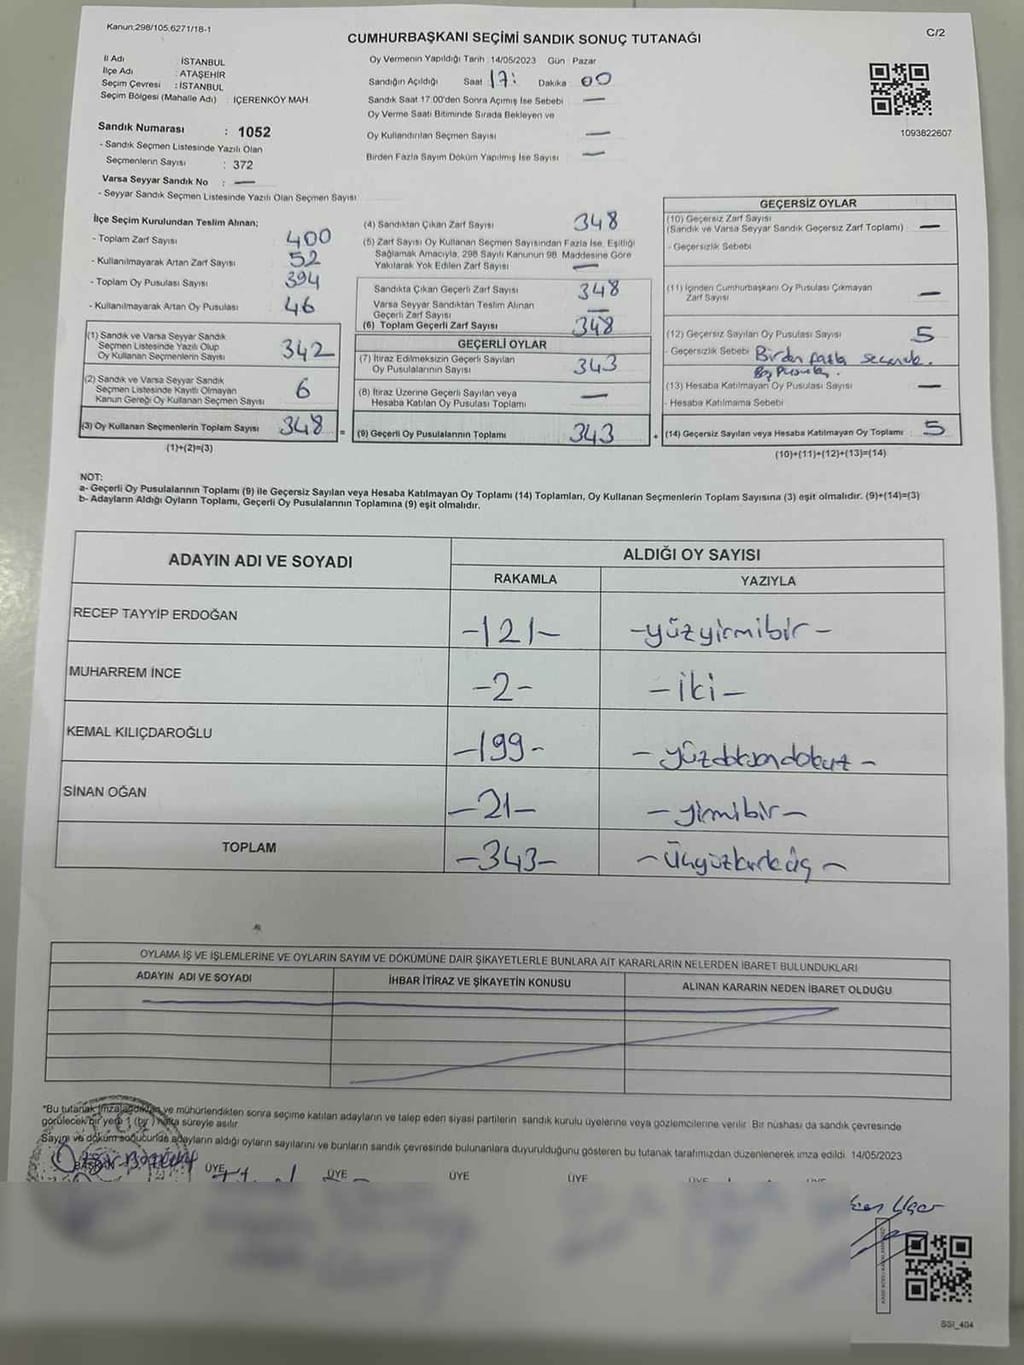 Kanun:298/105,6271/18-1
C/2
CUMHURBAŞKANI SEÇİMİ SANDIK SONUÇ TUTANAĞI
İl Adı : İSTANBUL
İlçe Adı : ATAŞEHİR
Seçim Çevresi : İSTANBUL
Seçim Bölgesi (Mahalle Adı) : İÇERENKÖY MAH.
Sandık Numarası : 1052
- Sandık Seçmen Listesinde Yazılı Olan
Seçmenlerin Sayısı : 372
Varsa Seyyar Sandık No : —
- Seyyar Sandık Seçmen Listesinde Yazılı Olan Seçmen Sayısı
Oy Vermenin Yapıldığı Tarih : 14/05/2023 Gün : Pazar
Sandığın Açıldığı Saat 17: Dakika 00
Sandık Saat 17.00'den Sonra Açımış İse Sebebi —
Oy Verme Saati Bitiminde Sırada Bekleyen ve
Oy Kullandırılan Seçmen Sayısı —
Birden Fazla Sayım Döküm Yapılmış İse Sayısı —
1093822607
İlçe Seçim Kurulundan Teslim Alınan;
- Toplam Zarf Sayısı 400
- Kullanılmayarak Artan Zarf Sayısı 52
- Toplam Oy Pusulası Sayısı 394
- Kullanılmayarak Artan Oy Pusulası 46
(1) Sandık ve Varsa Seyyar Sandık
Seçmen Listesinde Yazılı Olup
Oy Kullanan Seçmenlerin Sayısı 342
(2) Sandık ve Varsa Seyyar Sandık
Seçmen Listesinde Kayıtlı Olmayan
Kanun Gereği Oy Kullanan Seçmen Sayısı 6
(3) Oy Kullanan Seçmenlerin Toplam Sayısı 348
(1)+(2)=(3)
(4) Sandıktan Çıkan Zarf Sayısı 348
(5) Zarf Sayısı Oy Kullanan Seçmen Sayısından Fazla İse, Eşitliği
Sağlamak Amacıyla, 298 Sayılı Kanunun 98. Maddesine Göre
Yakılarak Yok Edilen Zarf Sayısı —
Sandıkta Çıkan Geçerli Zarf Sayısı 348
Varsa Seyyar Sandıktan Teslim Alınan
Geçerli Zarf Sayısı —
(6) Toplam Geçerli Zarf Sayısı 348
GEÇERLİ OYLAR
(7) İtiraz Edilmeksizin Geçerli Sayılan
Oy Pusulalarının Sayısı 343
(8) İtiraz Üzerine Geçerli Sayılan veya
Hesaba Katılan Oy Pusulası Toplamı —
= (9) Geçerli Oy Pusulalarının Toplamı 343
GEÇERSİZ OYLAR
(10) Geçersiz Zarf Sayısı
(Sandık ve Varsa Seyyar Sandık Geçersiz Zarf Toplamı) : —
- Geçersizlik Sebebi
(11) İçinden Cumhurbaşkanı Oy Pusulası Çıkmayan
Zarf Sayısı —
(12) Geçersiz Sayılan Oy Pusulası Sayısı 5
- Geçersizlik Sebebi Birden fazla
(13) Hesaba Katılmayan Oy Pusulası Sayısı —
- Hesaba Katılmama Sebebi
+ (14) Geçersiz Sayılan veya Hesaba Katılmayan Oy Toplamı 5
(10)+(11)+(12)+(13)=(14)
NOT:
a- Geçerli Oy Pusulalarının Toplamı (9) ile Geçersiz Sayılan veya Hesaba Katılmayan Oy Toplamı (14) Toplamları, Oy Kullanan Seçmenlerin Toplam Sayısına (3) eşit olmalıdır. (9)+(14)=(3)
b- Adayların Aldığı Oyların Toplamı, Geçerli Oy Pusulalarının Toplamına (9) eşit olmalıdır.
ADAYIN ADI VE SOYADI ALDIĞI OY SAYISI
RAKAMLA YAZIYLA
RECEP TAYYİP ERDOĞAN -121- -yüzyirmibir-
MUHARREM İNCE -2- -iki-
KEMAL KILIÇDAROĞLU -199- -yüzdoksandokuz-
SİNAN OĞAN -21- -yirmibir-
TOPLAM -343- -Üçyüzkırküç-
OYLAMA İŞ VE İŞLEMLERİNE VE OYLARIN SAYIM VE DÖKÜMÜNE DAİR ŞİKAYETLERLE BUNLARA AİT KARARLARIN NELERDEN İBARET BULUNDUKLARI
ADAYIN ADI VE SOYADI İHBAR İTİRAZ VE ŞİKAYETİN KONUSU ALINAN KARARIN NEDEN İBARET OLDUĞU
*Bu tutanak imzalandıktan ve mühürlendikten sonra seçime katılan adayların ve talep eden siyasi partilerin sandık kurulu üyelerine veya gözlemcilerine verilir. Bir nüshası da sandık çevresinde
görülecek bir yere 1 (bir) hafta süreyle asılır.
Sayım ve döküm sonucunda adayların aldığı oyların sayılarını ve bunların sandık çevresinde bulunanlara duyurulduğunu gösteren bu tutanak tarafımızdan düzenlenerek imza edildi. 14/05/2023
BAŞKAN ÜYE ÜYE ÜYE ÜYE ÜYE ÜYE
SSİ_404